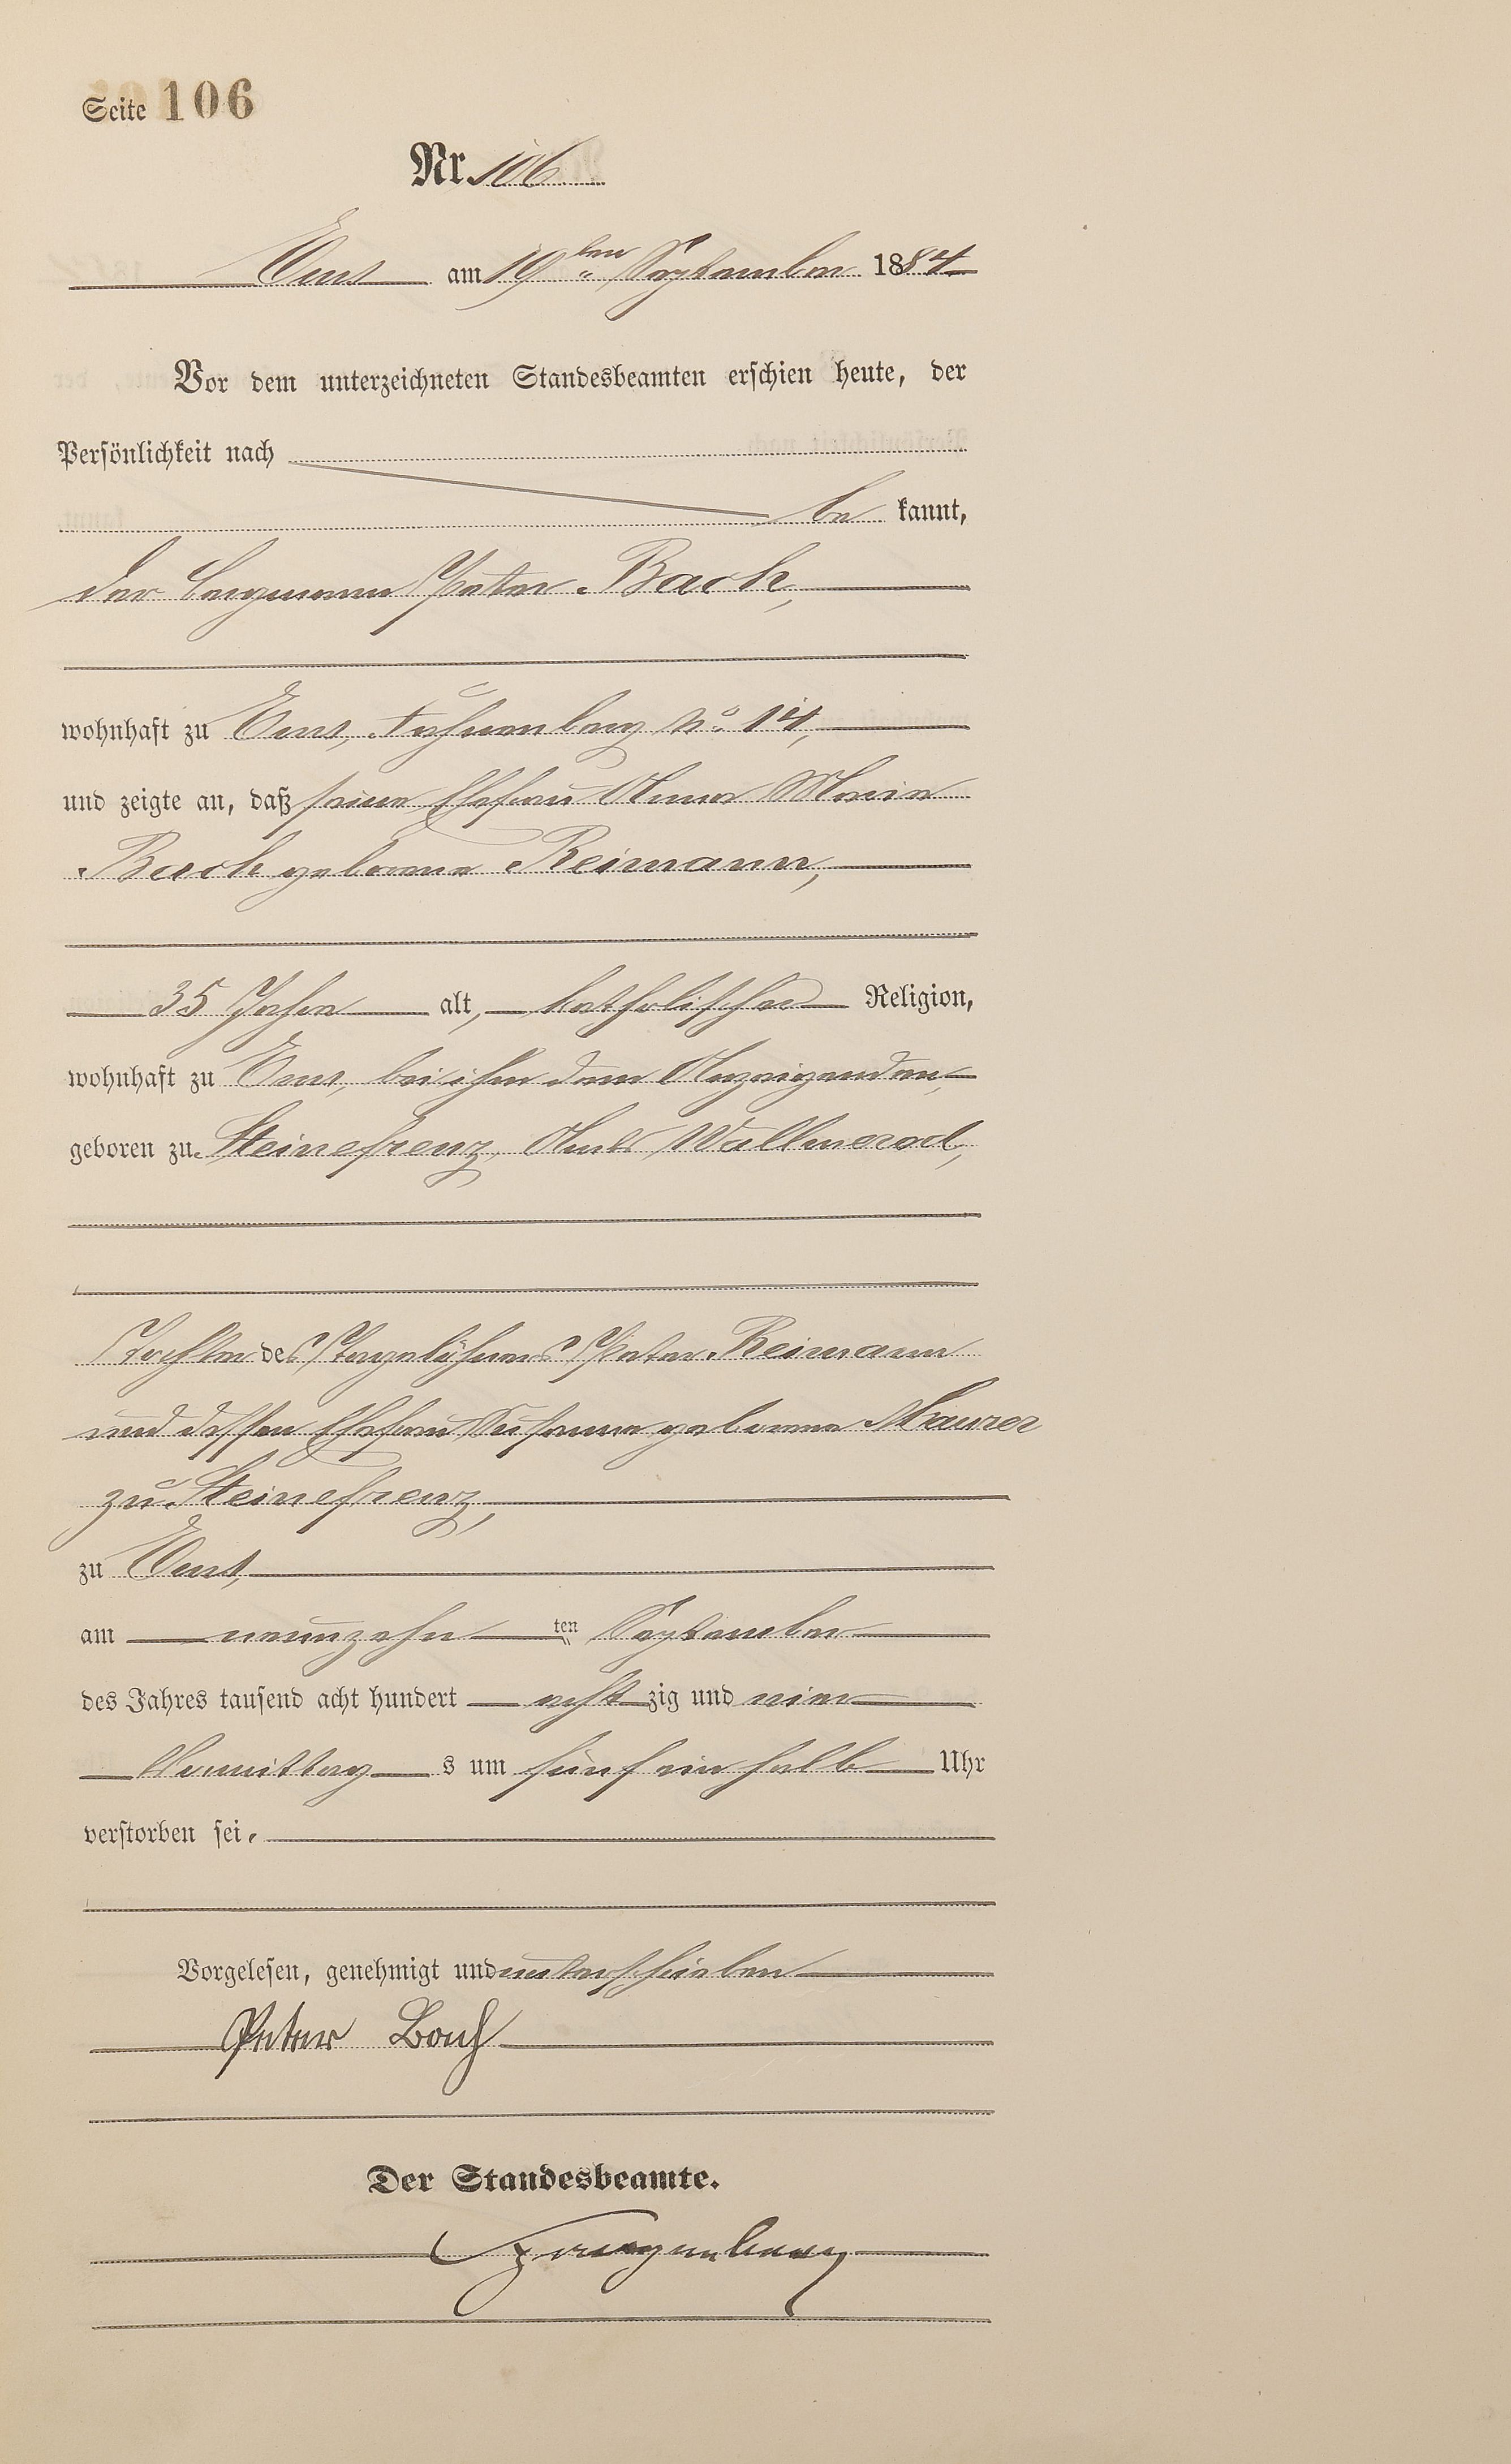 Seite 106
Nr. 106
Ems am 19ten September 1884
Vor dem unterzeichneten Standesbeamten erschien heute, der
Persönlichkeit nach
be kannt,
der Bergmann Peter Bach,
wohnhaft zu Ems, No. 14,
und zeigte an, daß seine Ehefrau Anna Maria
Bach geborene Reimann,
35 Jahre alt, katholischer Religion,
wohnhaft zu Ems, bei ihm dem Anzeigenden,
geboren zu Steinefrenz, Amts Wallmerod,
Tochter des Tagelöhners Peter Reimann
und dessen Ehefrau Susanna geborene Maurer
zu Steinefrenz,
zu Ems,
am neunzehn ten September
des Jahres tausend acht hundert acht zig und vier
Vormittag s um fünf ein halb Uhr
verstorben sei.
Vorgelesen, genehmigt und unterschrieben
Peter Bach
Der Standesbeamte.